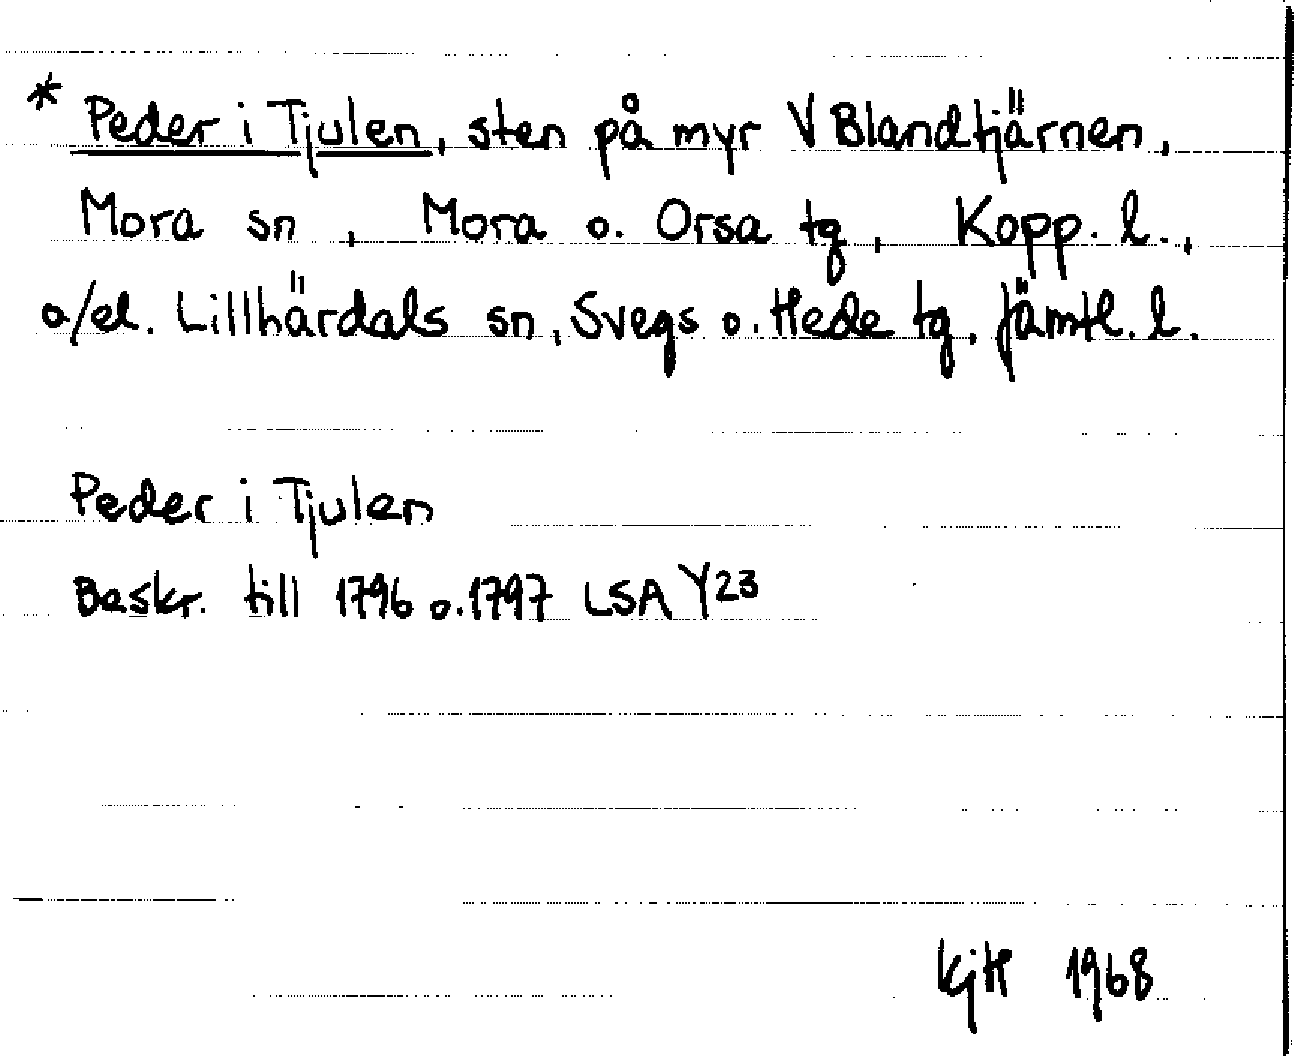 * Peder i Tjulen, sten på myr V Blandtjärnen,
Mora sn, Mora o. Orsa tg, Kopp. l.,
o/el. Lillhärdals sn, Svegs o. Hede tg, Jämtl. l.
Peder i Tjulen
Beskr. till 1796 o. 1797 LSA Y23
KjH 1968